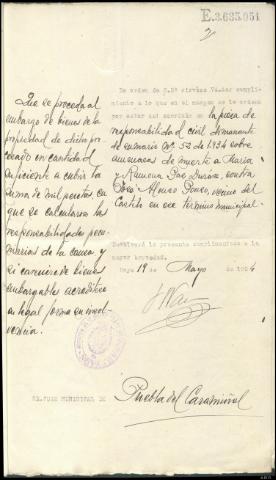 E.3683.051
2
De orden de S.Sª sirvase Vd. dar cumpli-
miento a lo que en el margen se le ordena
por estar asi acordado en la pieza de
responsabilidad civil dimanante
de sumario Nº 52 de 1934 sobre
amenazas de muerte a Maria
y Ramona Paz Durán, contra
José Alonso Ponce, vecino del
Castelo en ese término municipal.
Devolverá la presente cumplimentada a la
mayor brevedad.
Noya 19 de Mayo de 1934
Que se proceda al
embargo de bienes de la
propiedad de dicho pro-
cesado en cantidad
suficiente a cubrir la
suma de mil pesetas, en
que se calcularon las
responsabilidades pecu-
niarias de la causa y
si careciere de bienes
embargables acredítese
en legal forma su insol-
vencia.
SR. JUEZ MUNICIPAL DE Puebla del Caramiñal